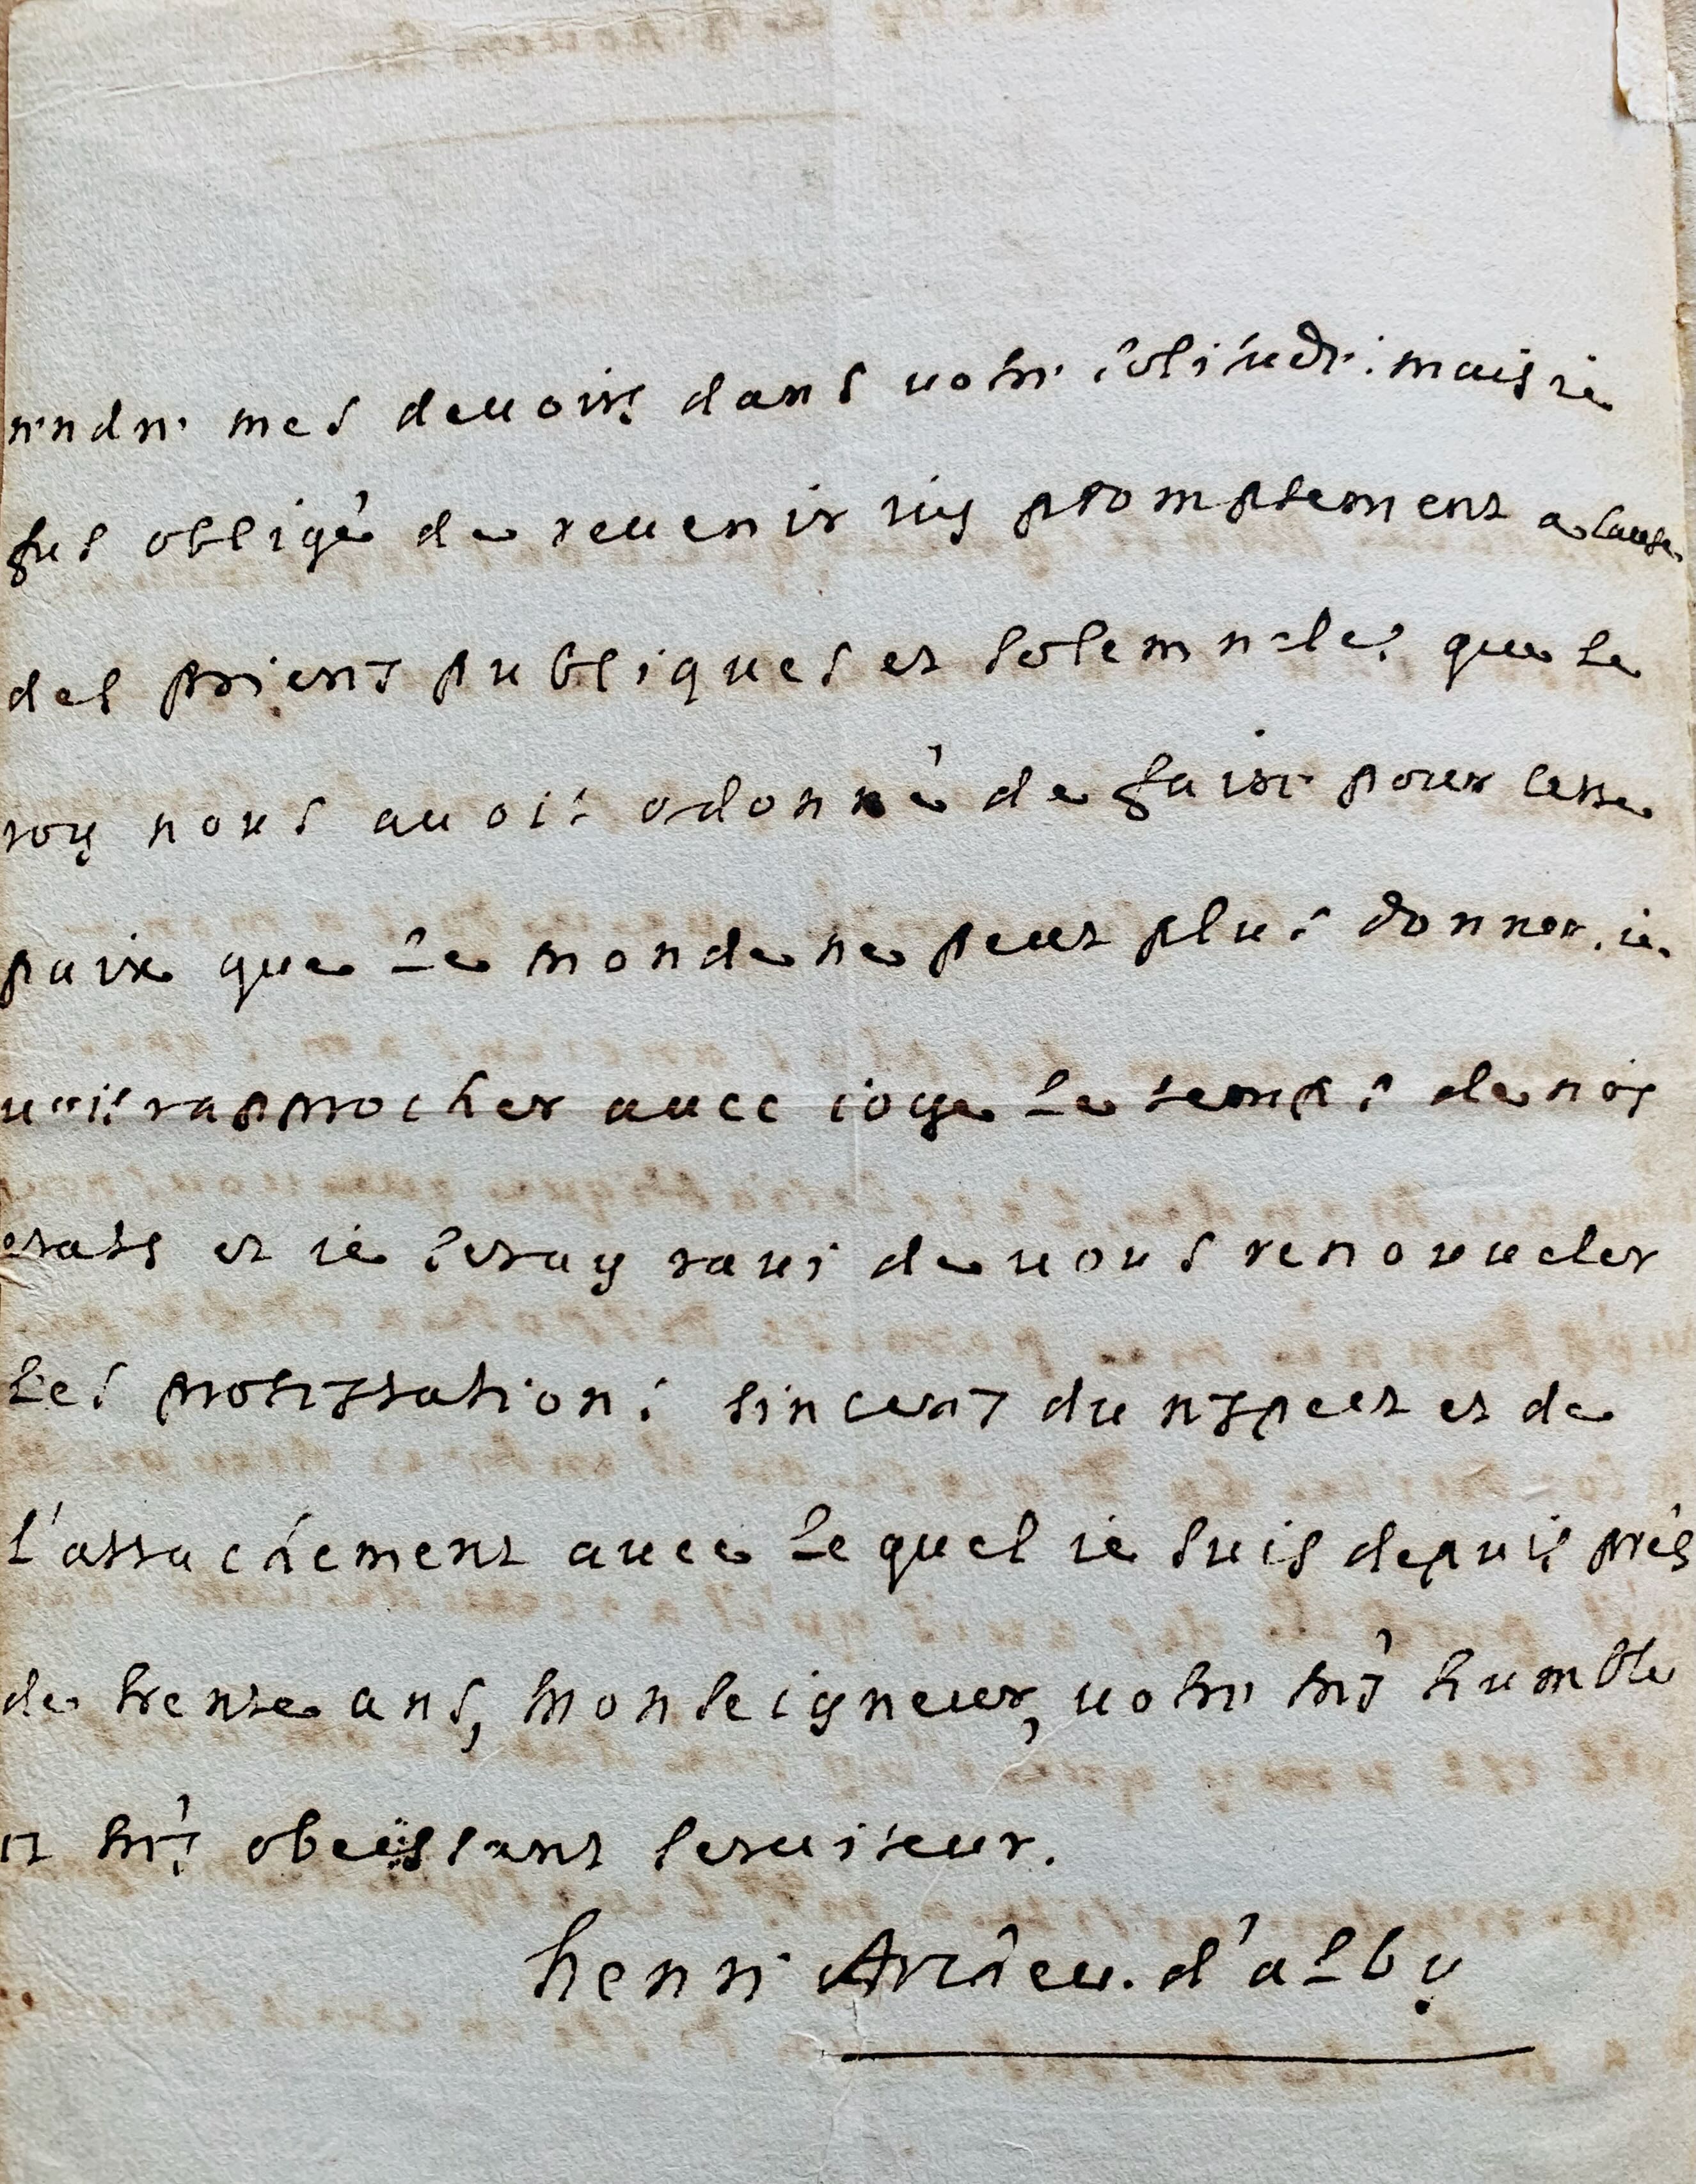 rendre mes deuoirs dans uotre solitude. mais ie
fus obligé de reuenir icy promptement a cause
des prieres publiques et solemneles que le
roy nous auoit odonné de faire pour cette
paix que le monde ne peut plus donner. ie
uois rapprocher auec ioye le temps de nos
etats et ie seray raui de uous renouueler
les protestations sinceres du respect et de
l'attachement auec le quel ie suis depuis prés
de trente ans, monseigneur, uotre trés humble
et trés obeïssant seruiteur.
henri Arch. eu. d'alby